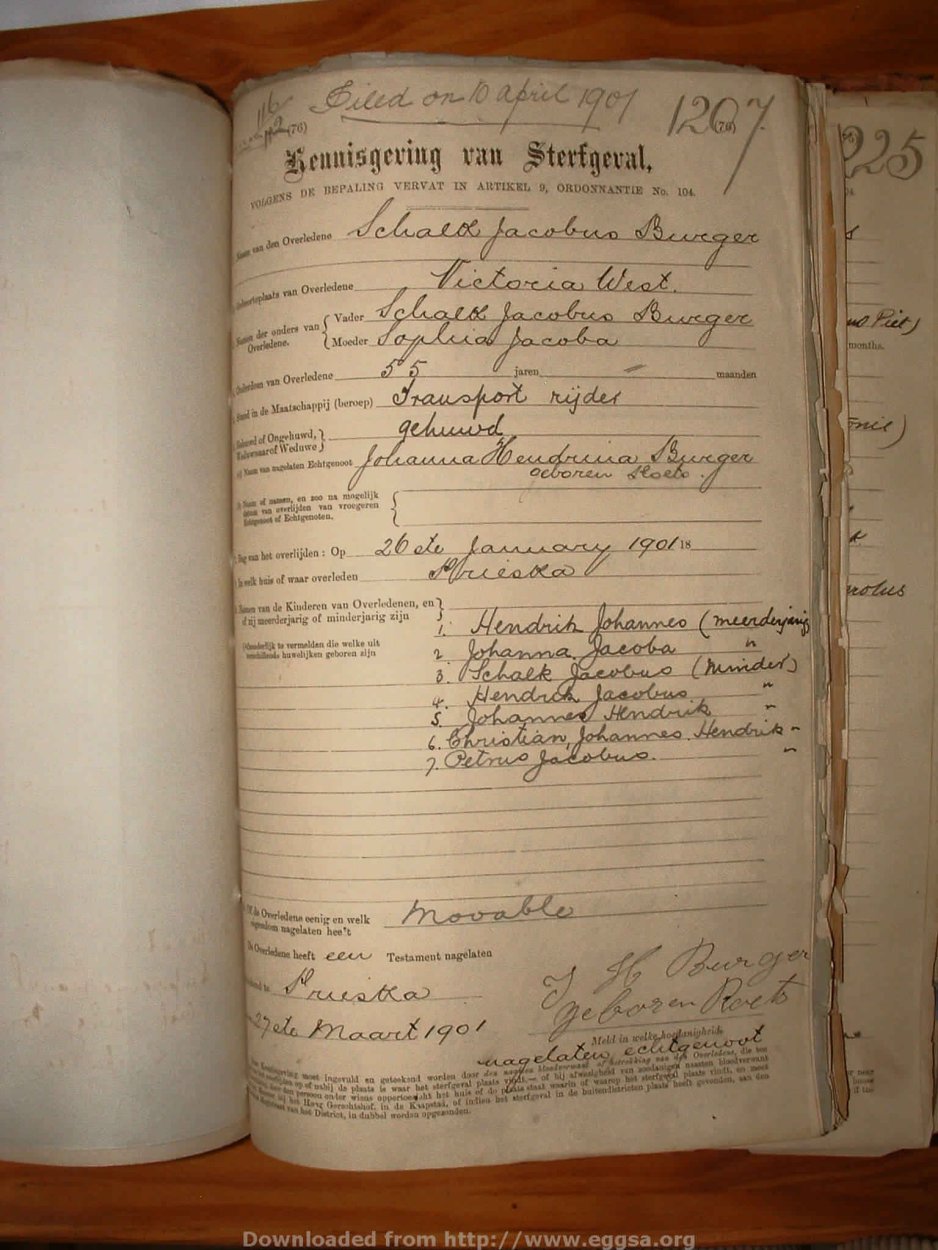 Filed on 10 April 1901
116
1207
225
(76)
(76)
Kennisgeving van Sterfgeval,
VOLGENS DE BEPALING VERVAT IN ARTIKEL 9, ORDONNANTIE No. 104.
Naam van den Overledene Schalk Jacobus Burger
Geboorteplaats van Overledene Victoria West.
Namen der ouders van Overledene. Vader Schalk Jacobus Burger
Moeder Sophia Jacoba
Ouderdom van Overledene 55 jaren " maanden
Stand in de Maatschappij (beroep) Transport rijder
Gehuwd of Ongehuwd,
Weduwnaar of Weduwe gehuwd
Naam van nagelaten Echtgenoot Johanna Hendrina Burger
geboren Roets.
Naam of namen, en zoo na mogelijk
datum van overlijden van vroegeren
Echtgenoot of Echtgenoten.
Dag van het overlijden: Op 26ste January 1901 18
In welk huis of waar overleden Prieska
Namen van de Kinderen van Overledenen, en
of zij meerderjarig of minderjarig zijn
1. Hendrik Johannes (meerderjarig
Afzonderlijk te vermelden die welke uit
verschillende huwelijken geboren zijn
2. Johanna Jacoba "
3. Schalk Jacobus (minder)
4. Hendrik Jacobus "
5. Johannes Hendrik "
6. Christian, Johannes Hendrik "
7. Petrus Jacobus. "
Of de Overledene eenig en welk
eigendom nagelaten hee't Movable
De Overledene heeft een Testament nagelaten
Prieska
27ste Maart 1901
J H Burger
geboren Roets
Meld in welke hoedanigheid
nagelaten echtgenoot
Piet)
months.
Downloaded from http://www.eggsa.org